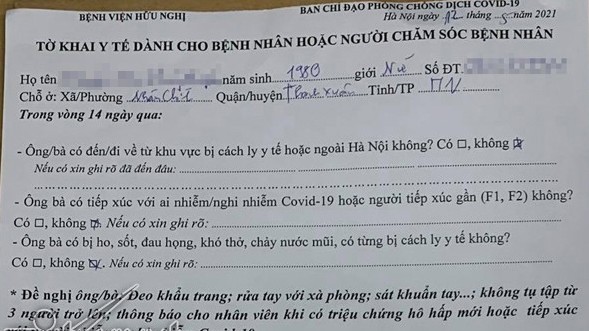 BỆNH VIỆN HỮU NGHỊ
BAN CHỈ ĐẠO PHÒNG CHỐNG DỊCH COVID-19
Hà Nội ngày 12 tháng 5 năm 2021
TỜ KHAI Y TẾ DÀNH CHO BỆNH NHÂN HOẶC NGƯỜI CHĂM SÓC BỆNH NHÂN
Họ tên năm sinh 1980 giới Nữ Số ĐT.
Chỗ ở: Xã/Phường Nhân Chính Quận/huyện Thanh Xuân Tỉnh/TP HN
Trong vòng 14 ngày qua:
- Ông/bà có đến/đi về từ khu vực bị cách ly y tế hoặc ngoài Hà Nội không? Có □, không ☒
Nếu có xin ghi rõ đã đến đâu:
- Ông bà có tiếp xúc với ai nhiễm/nghi nhiễm Covid-19 hoặc người tiếp xúc gần (F1, F2) không?
Có □, không ☒ Nếu có xin ghi rõ:
- Ông bà có bị ho, sốt, đau họng, khó thở, chảy nước mũi, có từng bị cách ly y tế không?
Có □, không ☒. Nếu có xin ghi rõ:
* Đề nghị ông/bà: Đeo khẩu trang; rửa tay với xà phòng; sát khuẩn tay...; không tụ tập từ
3 người trở lên; thông báo cho nhân viên khi có triệu chứng hô hấp mới hoặc tiếp xúc